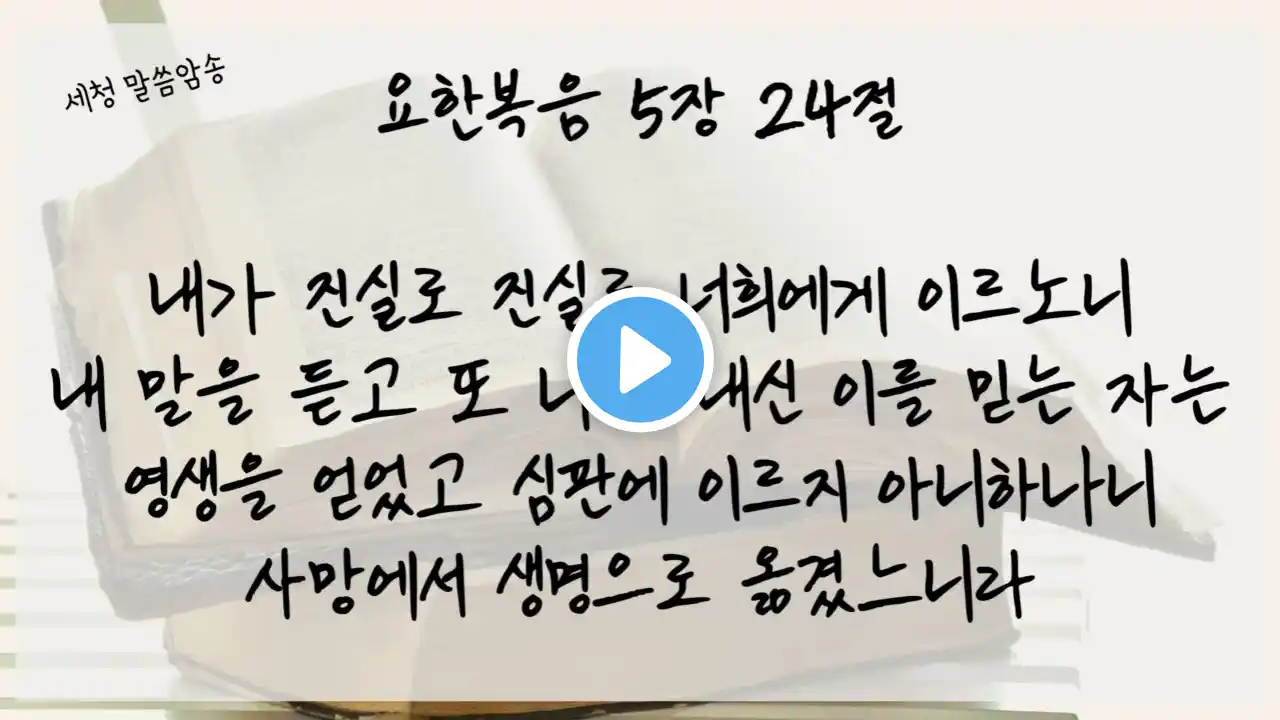 세청 말씀암송
요한복음 5장 24절
내가 진실로 진실로 너희에게 이르노니
내 말을 듣고 또 이를 믿는 자는
영생을 얻었고 심판에 이르지 아니하나니
사망에서 생명으로 옮겼느니라